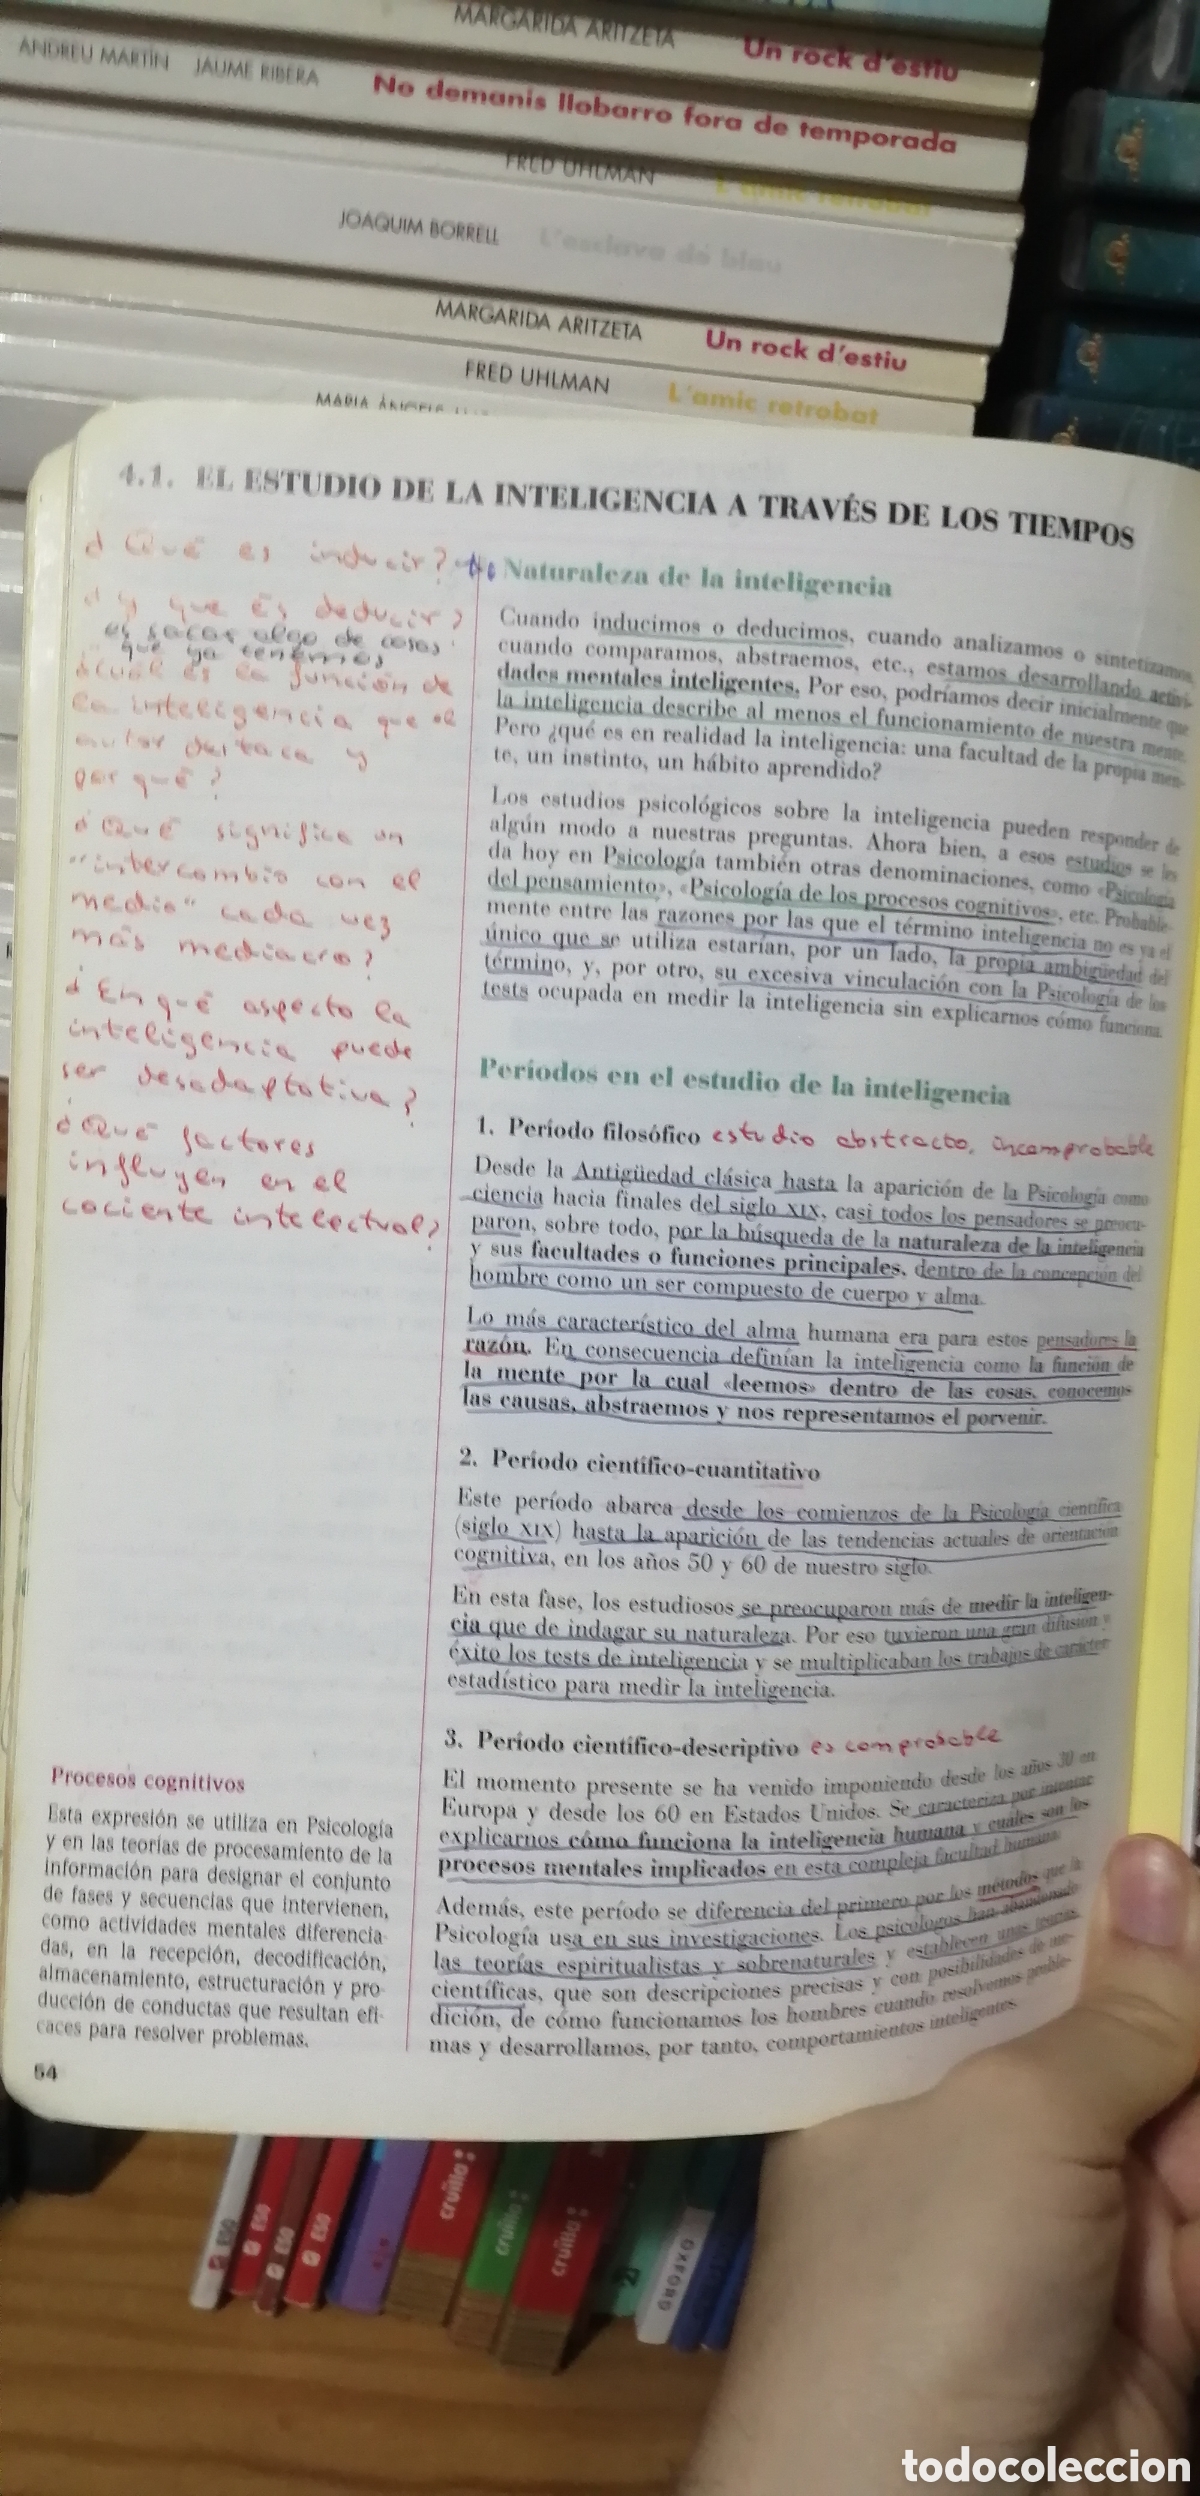 MARGARIDA ARITZETA Un rock d'estiu
ANDREU MARTÍN JAUME RIBERA No demanis llobarro fora de temporada
FRED UHLMAN L'amic retrobat
JOAQUIM BORRELL L'esclava de blau
MARGARIDA ARITZETA Un rock d'estiu
FRED UHLMAN L'amic retrobat
MARIA ÀNGELS
4.1. EL ESTUDIO DE LA INTELIGENCIA A TRAVÉS DE LOS TIEMPOS
¿Qué es inducir?
¿y que és deducir?
es sacar algo de cosas
que ya tenemos
¿cuál es la función de
la inteligencia que el
autor destaca y
por qué?
¿Qué significa un
"intercambio con el
medio" cada vez
más mediacro?
¿En qué aspecto la
inteligencia puede
ser desadaptativa?
¿Qué factores
influyen en el
cociente intelectual?
Naturaleza de la inteligencia
Cuando inducimos o deducimos, cuando analizamos o sintetizamos,
cuando comparamos, abstraemos, etc., estamos desarrollando activi-
dades mentales inteligentes. Por eso, podríamos decir inicialmente que
la inteligencia describe al menos el funcionamiento de nuestra mente.
Pero ¿qué es en realidad la inteligencia: una facultad de la propia men-
te, un instinto, un hábito aprendido?
Los estudios psicológicos sobre la inteligencia pueden responder de
algún modo a nuestras preguntas. Ahora bien, a esos estudios se les
da hoy en Psicología también otras denominaciones, como «Psicología
del pensamiento», «Psicología de los procesos cognitivos», etc. Probable-
mente entre las razones por las que el término inteligencia no es ya el
único que se utiliza estarían, por un lado, la propia ambigüedad del
término, y, por otro, su excesiva vinculación con la Psicología de los
tests ocupada en medir la inteligencia sin explicarnos cómo funciona.
Períodos en el estudio de la inteligencia
1. Período filosófico estudio abstracto, incomprobable
Desde la Antigüedad clásica hasta la aparición de la Psicología como
ciencia hacia finales del siglo XIX, casi todos los pensadores se preocu-
paron, sobre todo, por la búsqueda de la naturaleza de la inteligencia
y sus facultades o funciones principales, dentro de la concepción del
hombre como un ser compuesto de cuerpo y alma.
Lo más característico del alma humana era para estos pensadores la
razón. En consecuencia definían la inteligencia como la función de
la mente por la cual «leemos» dentro de las cosas, conocemos
las causas, abstraemos y nos representamos el porvenir.
2. Período científico-cuantitativo
Este período abarca desde los comienzos de la Psicología científica
(siglo XIX) hasta la aparición de las tendencias actuales de orientación
cognitiva, en los años 50 y 60 de nuestro siglo.
En esta fase, los estudiosos se preocuparon más de medir la inteligen-
cia que de indagar su naturaleza. Por eso tuvieron una gran difusión y
éxito los tests de inteligencia y se multiplicaban los trabajos de carácter
estadístico para medir la inteligencia.
3. Período científico-descriptivo es comprobable
El momento presente se ha venido imponiendo desde los años 30 en
Europa y desde los 60 en Estados Unidos. Se caracteriza por intentar
explicarnos cómo funciona la inteligencia humana y cuáles son los
procesos mentales implicados en esta compleja facultad humana.
Además, este período se diferencia del primero por los métodos que la
Psicología usa en sus investigaciones. Los psicólogos han abandonado
las teorías espiritualistas y sobrenaturales y establecen unas teorías
científicas, que son descripciones precisas y con posibilidades de me-
dición, de cómo funcionamos los hombres cuando resolvemos proble-
mas y desarrollamos, por tanto, comportamientos inteligentes.
Procesos cognitivos
Esta expresión se utiliza en Psicología
y en las teorías de procesamiento de la
información para designar el conjunto
de fases y secuencias que intervienen,
como actividades mentales diferencia-
das, en la recepción, decodificación,
almacenamiento, estructuración y pro-
ducción de conductas que resultan efi-
caces para resolver problemas.
54
ESO
ESO
ESO
ESO
cruïlla
cruïlla
cruïlla
OXFORD
todocoleccion